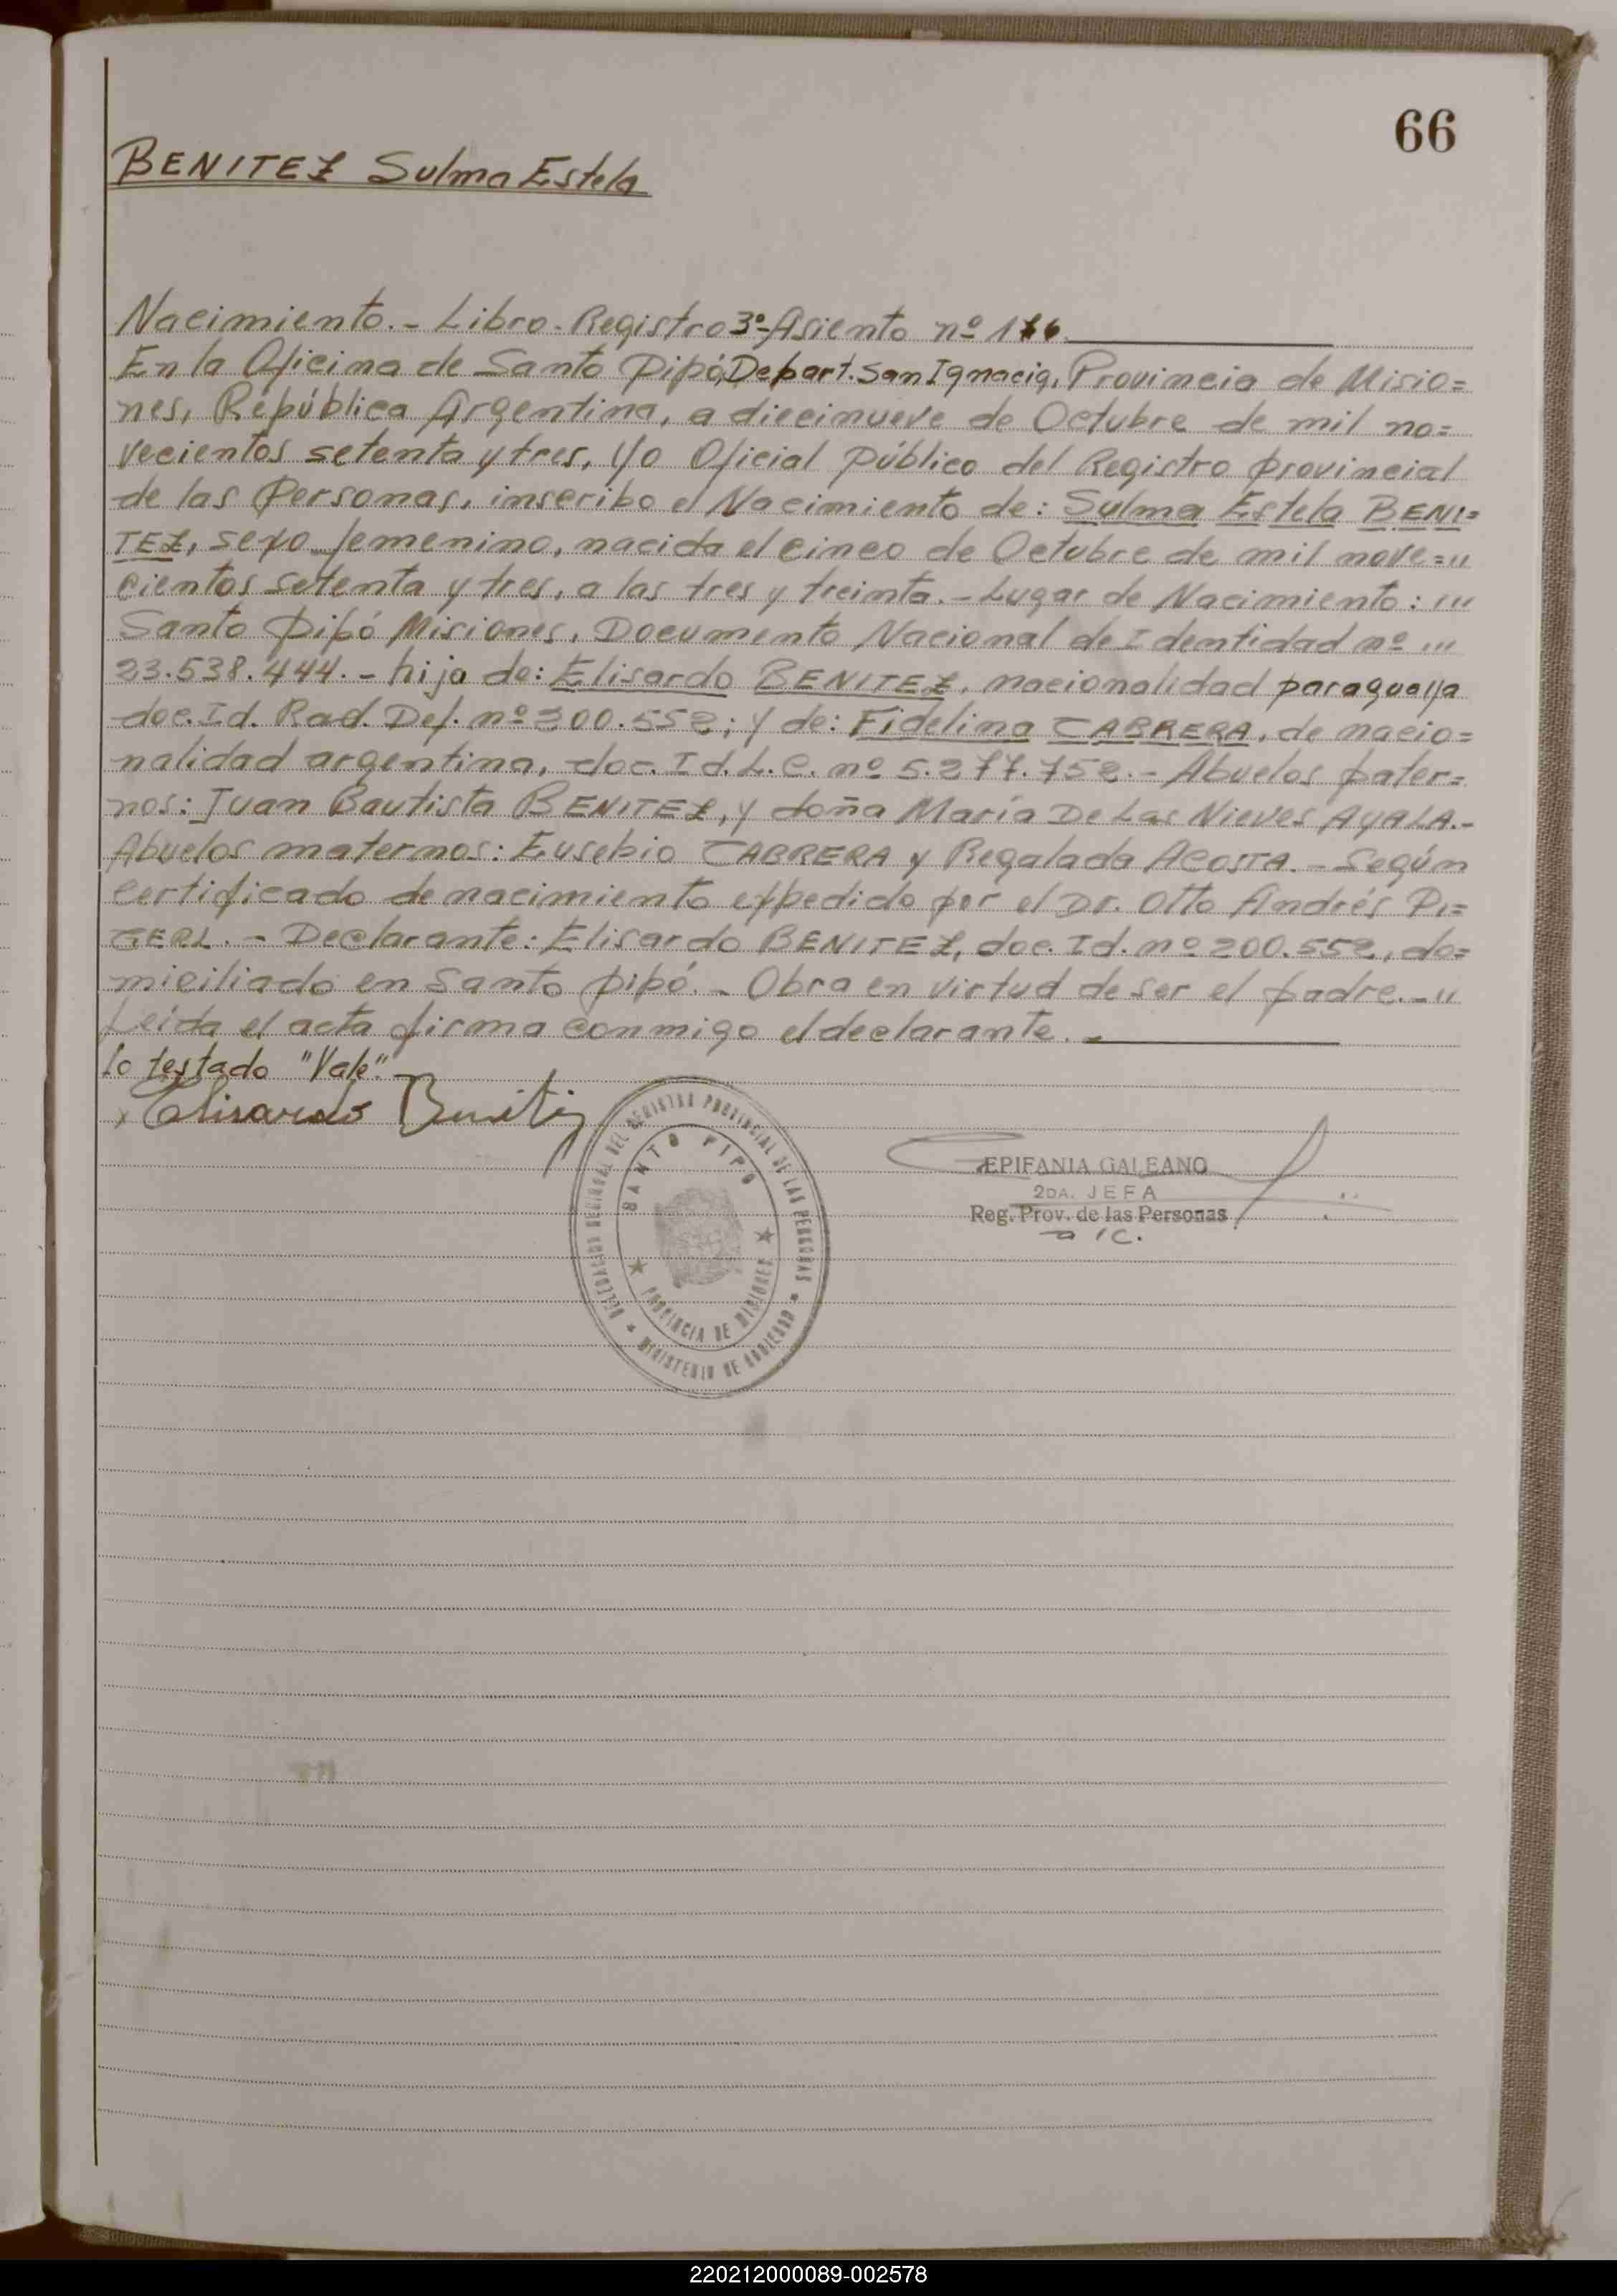 66
BENITEZ Sulma Estela
Nacimiento.- Libro-Registro 3º-Asiento nº
En la Oficina de Santo Pipó, Depart. San Ignacio, Provincia de Misio=
nes, República Argentina, a diecinueve de Octubre de mil no=
vecientos setenta y tres, Yo Oficial Público del Registro Provincial
de las Personas, inscribo el Nacimiento de: Sulma Estela BENI=
TEZ, sexo femenino, nacida el cinco de Octubre de mil nove="
cientos setenta y tres, a las tres y treinta.- Lugar de Nacimiento: '''
Santo Pipó Misiones, Documento Nacional de Identidad nº '''
23.538.444.- hija de: Elisardo BENITEZ, nacionalidad paraguaya
doc. Id. Rad. Def. nº 200.552; y de: Fidelina CABRERA, de nacio=
nalidad argentina, doc. Id. L. C. nº 5.277.752.- Abuelos pater=
nos: Juan Bautista BENITEZ, y doña María De Las Nieves AYALA.-
Abuelos maternos: Eusebio CABRERA y Regalada ACOSTA.- Según
certificado de nacimiento expedido por el Dr. Otto Andrés PI=
GERL.- Declarante: Elisardo BENITEZ, doc. Id. nº 200.552, do=
miciliado en Santo Pipó.- Obra en virtud de ser el padre.-"
Leída el acta firma conmigo el declarante.-
lo testado "Vale".-
x Elisardo Benitez
DELEGACION REGIONAL DEL REGISTRO PROVINCIAL DE LAS PERSONAS
MINISTERIO DE GOBIERNO
SANTO PIPO
PROVINCIA DE MISIONES
EPIFANIA GALEANO
2DA. JEFA
Reg. Prov. de las Personas
a/c.
220212000089-002578